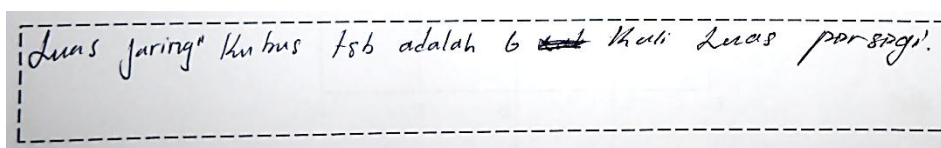 Luas jaring" kubus tsb adalah 6 kali Luas persegi.